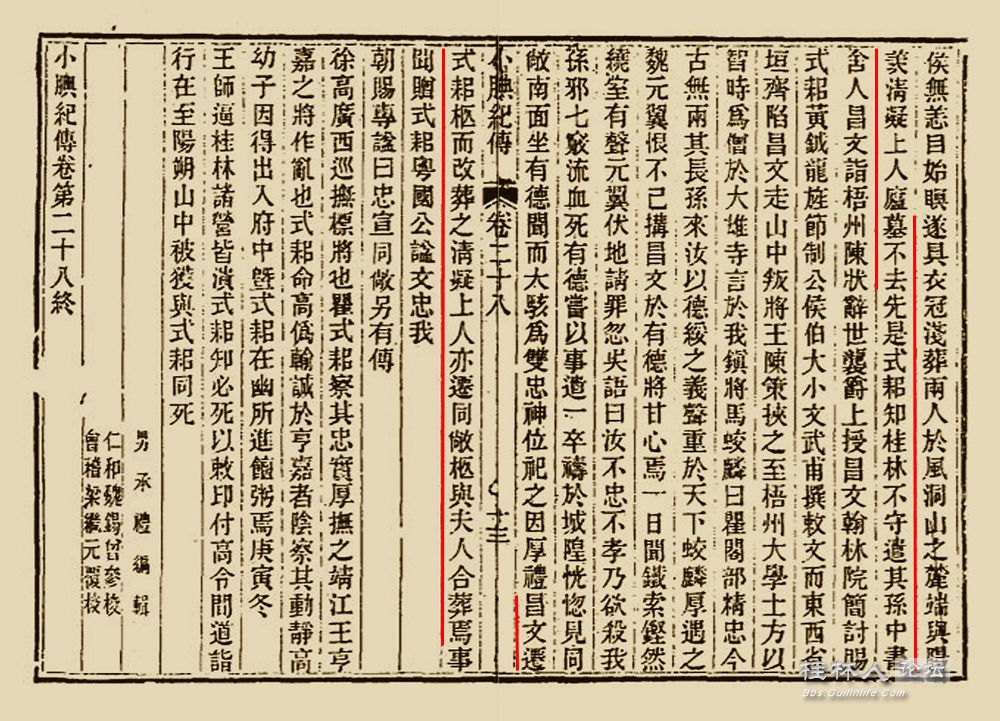 侯無恙目始瞑遂具衣冠淺葬兩人於風洞山之麓端與陽
羨清凝上人廬墓不去先是式耜知桂林不守遣其孫中書
舍人昌文詣梧州陳狀辭世襲爵上授昌文翰林院簡討賜
式耜黃鉞龍旌節制公侯伯大小文武甫撰敕文而東西省
垣齊陷昌文走山中叛將王陳策挾之至梧州大學士方以
智時爲僧於大雄寺言於我鎮將馬蛟麟曰瞿閣部精忠今
古無兩其長孫來汝以德綏之義聲重於天下蛟麟厚遇之
魏元翼恨不已搆昌文於有德將甘心焉一日聞鐵索鏗然
繞室有聲元翼伏地請罪忽吳語曰汝不忠不孝乃欲殺我
孫邪七竅流血死有德嘗以事遣一卒禱於城隍恍惚見同
敞南面坐有德聞而大駭爲雙忠神位祀之因厚禮昌文遷
小腆紀傳 卷二十八 十三
式耜柩而改葬之清凝上人亦遷同敞柩與夫人合葬焉事
聞贈式耜粵國公諡文忠我
朝賜專諡曰忠宣同敞另有傳
徐高廣西巡撫標將也瞿式耜察其忠實厚撫之靖江王亨
嘉之將作亂也式耜命高僞輸誠於亨嘉者陰察其動靜高
幼子因得出入府中曁式耜在幽所進饘粥焉庚寅冬
王師逼桂林諸營皆潰式耜知必死以敕印付高令間道詣
行在至陽朔山中被獲與式耜同死
男承禮編輯
仁和魏錫曾參校
會稽梁繼元覆校
小腆紀傳卷第二十八終
桂林人论坛
Bbs.Guilinlife.Com